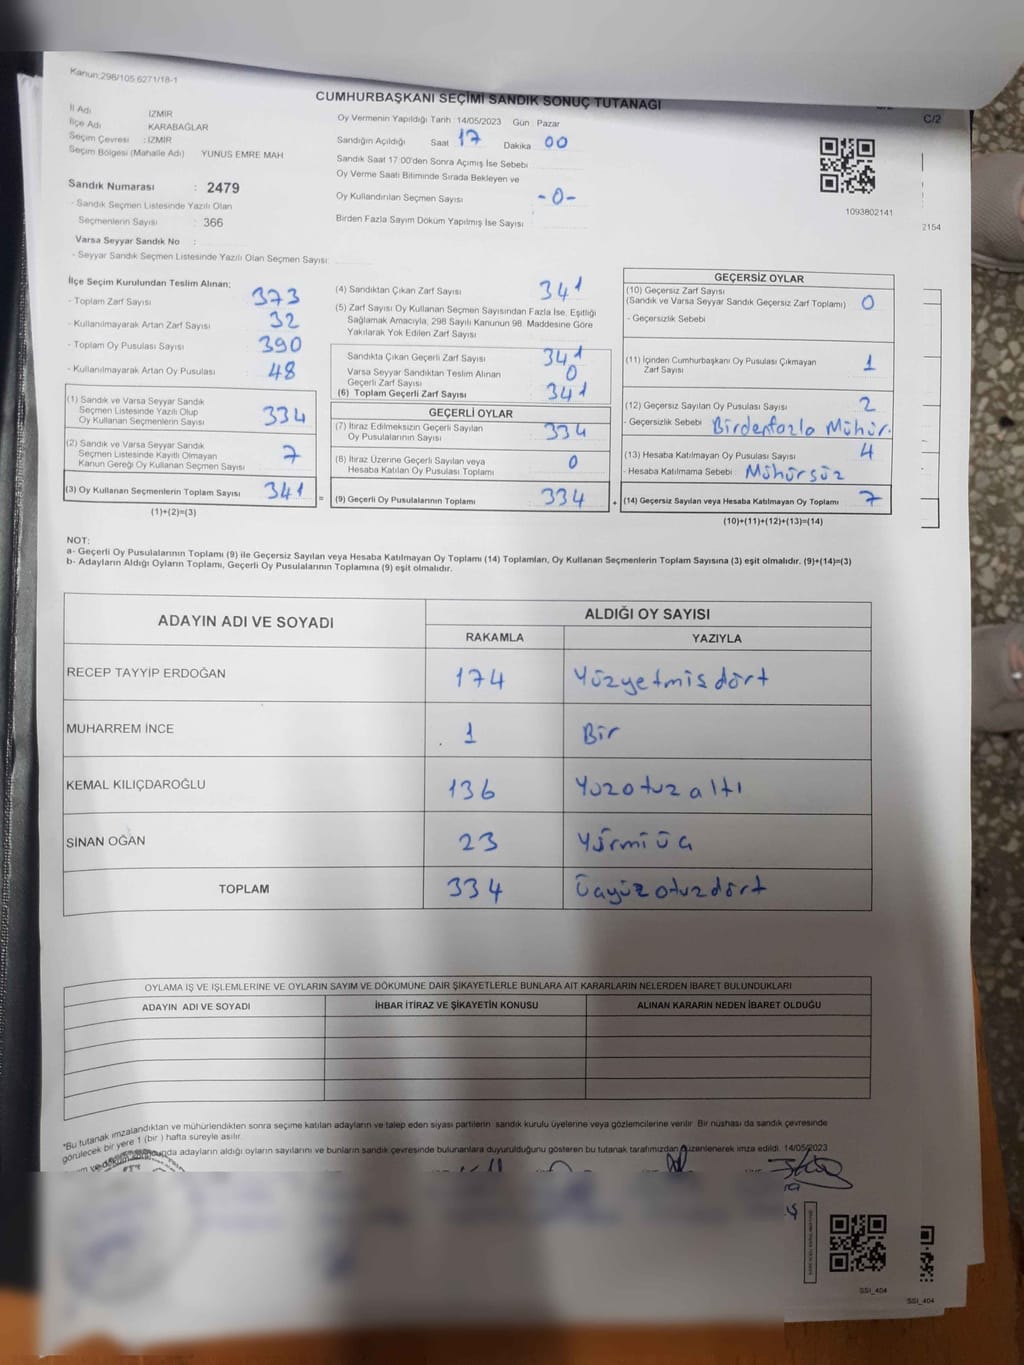 Kanun:298/105 6271/18-1
CUMHURBAŞKANI SEÇİMİ SANDIK SONUÇ TUTANAĞI
C/2
İl Adı IZMIR
İlçe Adı KARABAĞLAR
Seçim Çevresi : IZMIR
Seçim Bölgesi (Mahalle Adı) YUNUS EMRE MAH
Sandık Numarası : 2479
- Sandık Seçmen Listesinde Yazılı Olan
Seçmenlerin Sayısı : 366
Varsa Seyyar Sandık No :
- Seyyar Sandık Seçmen Listesinde Yazılı Olan Seçmen Sayısı:
Oy Vermenin Yapıldığı Tarih 14/05/2023 Gün Pazar
Sandığın Açıldığı Saat 17 Dakika 00
Sandık Saat 17.00'den Sonra Açımış İse Sebebi
Oy Verme Saati Bitiminde Sırada Bekleyen ve
Oy Kullandırılan Seçmen Sayısı -0-
Birden Fazla Sayım Döküm Yapılmış İse Sayısı
1093802141
2154
İlçe Seçim Kurulundan Teslim Alınan:
- Toplam Zarf Sayısı 373
- Kullanılmayarak Artan Zarf Sayısı 32
- Toplam Oy Pusulası Sayısı 390
- Kullanılmayarak Artan Oy Pusulası 48
(1) Sandık ve Varsa Seyyar Sandık
Seçmen Listesinde Yazılı Olup
Oy Kullanan Seçmenlerin Sayısı 334
(2) Sandık ve Varsa Seyyar Sandık
Seçmen Listesinde Kayıtlı Olmayan
Kanun Gereği Oy Kullanan Seçmen Sayısı 7
(3) Oy Kullanan Seçmenlerin Toplam Sayısı 341
(1)+(2)=(3)
(4) Sandıktan Çıkan Zarf Sayısı 341
(5) Zarf Sayısı Oy Kullanan Seçmen Sayısından Fazla İse, Eşitliği
Sağlamak Amacıyla; 298 Sayılı Kanunun 98. Maddesine Göre
Yakılarak Yok Edilen Zarf Sayısı
Sandıkta Çıkan Geçerli Zarf Sayısı 341
Varsa Seyyar Sandıktan Teslim Alınan
Geçerli Zarf Sayısı 0
(6) Toplam Geçerli Zarf Sayısı 341
GEÇERLİ OYLAR
(7) İtiraz Edilmeksizin Geçerli Sayılan
Oy Pusulalarının Sayısı 334
(8) İtiraz Üzerine Geçerli Sayılan veya
Hesaba Katılan Oy Pusulası Toplamı 0
= (9) Geçerli Oy Pusulalarının Toplamı 334
GEÇERSİZ OYLAR
(10) Geçersiz Zarf Sayısı
(Sandık ve Varsa Seyyar Sandık Geçersiz Zarf Toplamı) 0
- Geçersizlik Sebebi
(11) İçinden Cumhurbaşkanı Oy Pusulası Çıkmayan
Zarf Sayısı 1
(12) Geçersiz Sayılan Oy Pusulası Sayısı 2
- Geçersizlik Sebebi Birdenfazla Mühür.
(13) Hesaba Katılmayan Oy Pusulası Sayısı 4
- Hesaba Katılmama Sebebi : Mühürsüz
+ (14) Geçersiz Sayılan veya Hesaba Katılmayan Oy Toplamı 7
(10)+(11)+(12)+(13)=(14)
NOT:
a- Geçerli Oy Pusulalarının Toplamı (9) ile Geçersiz Sayılan veya Hesaba Katılmayan Oy Toplamı (14) Toplamları, Oy Kullanan Seçmenlerin Toplam Sayısına (3) eşit olmalıdır. (9)+(14)=(3)
b- Adayların Aldığı Oyların Toplamı, Geçerli Oy Pusulalarının Toplamına (9) eşit olmalıdır.
ADAYIN ADI VE SOYADI ALDIĞI OY SAYISI
RAKAMLA YAZIYLA
RECEP TAYYİP ERDOĞAN 174 Yüzyetmisdört
MUHARREM İNCE 1 Bir
KEMAL KILIÇDAROĞLU 136 Yuzotuzaltı
SİNAN OĞAN 23 Yirmiüç
TOPLAM 334 Üçyüzotuzdört
OYLAMA İŞ VE İŞLEMLERİNE VE OYLARIN SAYIM VE DÖKÜMÜNE DAİR ŞİKAYETLERLE BUNLARA AİT KARARLARIN NELERDEN İBARET BULUNDUKLARI
ADAYIN ADI VE SOYADI İHBAR İTİRAZ VE ŞİKAYETİN KONUSU ALINAN KARARIN NEDEN İBARET OLDUĞU
*Bu tutanak imzalandıktan ve mühürlendikten sonra seçime katılan adayların ve talep eden siyasi partilerin sandık kurulu üyelerine veya gözlemcilerine verilir. Bir nüshası da sandık çevresinde
görülecek bir yere 1 (bir ) hafta süreyle asılır.
adayların aldığı oyların sayılarını ve bunların sandık çevresinde bulunanlara duyurulduğunu gösteren bu tutanak tarafımızdan düzenlenerek imza edildi. 14/05/2023
SSI_404
SSI_404